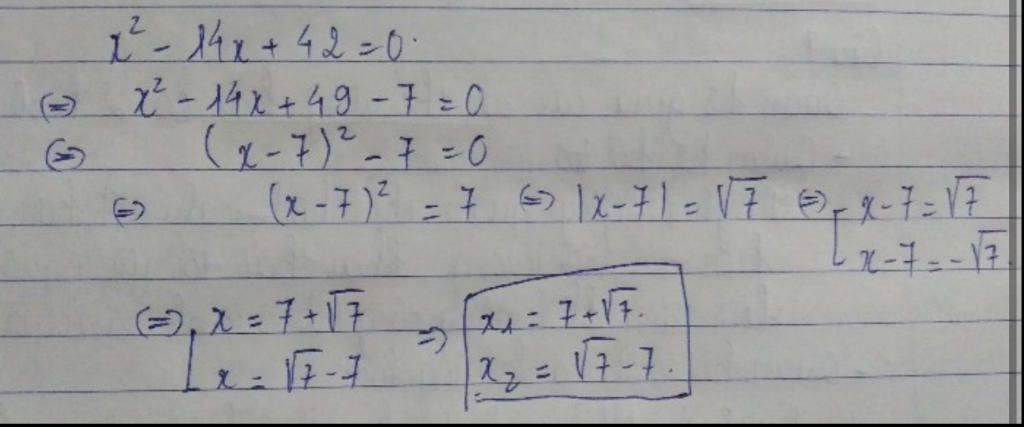 x² - 14x + 42 = 0.
(=) x² - 14x + 49 - 7 = 0
(=) (x - 7)² - 7 = 0
(=) (x - 7)² = 7 (=) |x - 7| = √7 (=) [ x - 7 = √7
x - 7 = -√7.
(=) [ x = 7 + √7 => x₁ = 7 + √7.
x = √7 - 7 x₂ = √7 - 7.